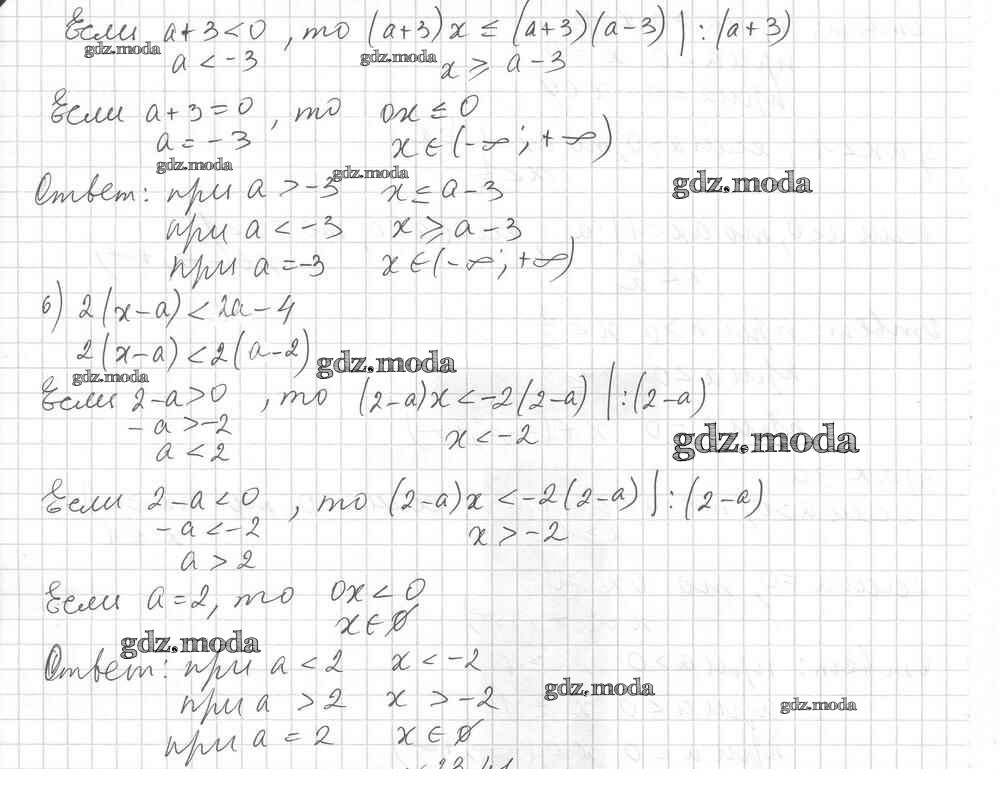 Если a+3<0, то (a+3)x ≤ (a+3)(a-3) | : (a+3)
gdz.moda gdz.moda
a < -3 x ⩾ a-3
Если a+3=0, то 0x ≤ 0
a = -3 x ∈ (-∞; +∞)
gdz.moda gdz.moda gdz.moda
Ответ: при a > -3 x ≤ a-3
при a < -3 x ⩾ a-3
при a = -3 x ∈ (-∞; +∞)
б) 2(x-a) < 2a-4
2(x-a) < 2(a-2) gdz.moda
gdz.moda
Если 2-a>0, то (2-a)x < -2(2-a) | : (2-a)
-a > -2 x < -2 gdz.moda
a < 2
Если 2-a<0, то (2-a)x < -2(2-a) | : (2-a)
-a < -2 x > -2
a > 2
Если a=2, то 0x < 0
x ∈ ∅
gdz.moda
Ответ: при a < 2 x < -2
gdz.moda
при a > 2 x > -2 gdz.moda
при a = 2 x ∈ ∅